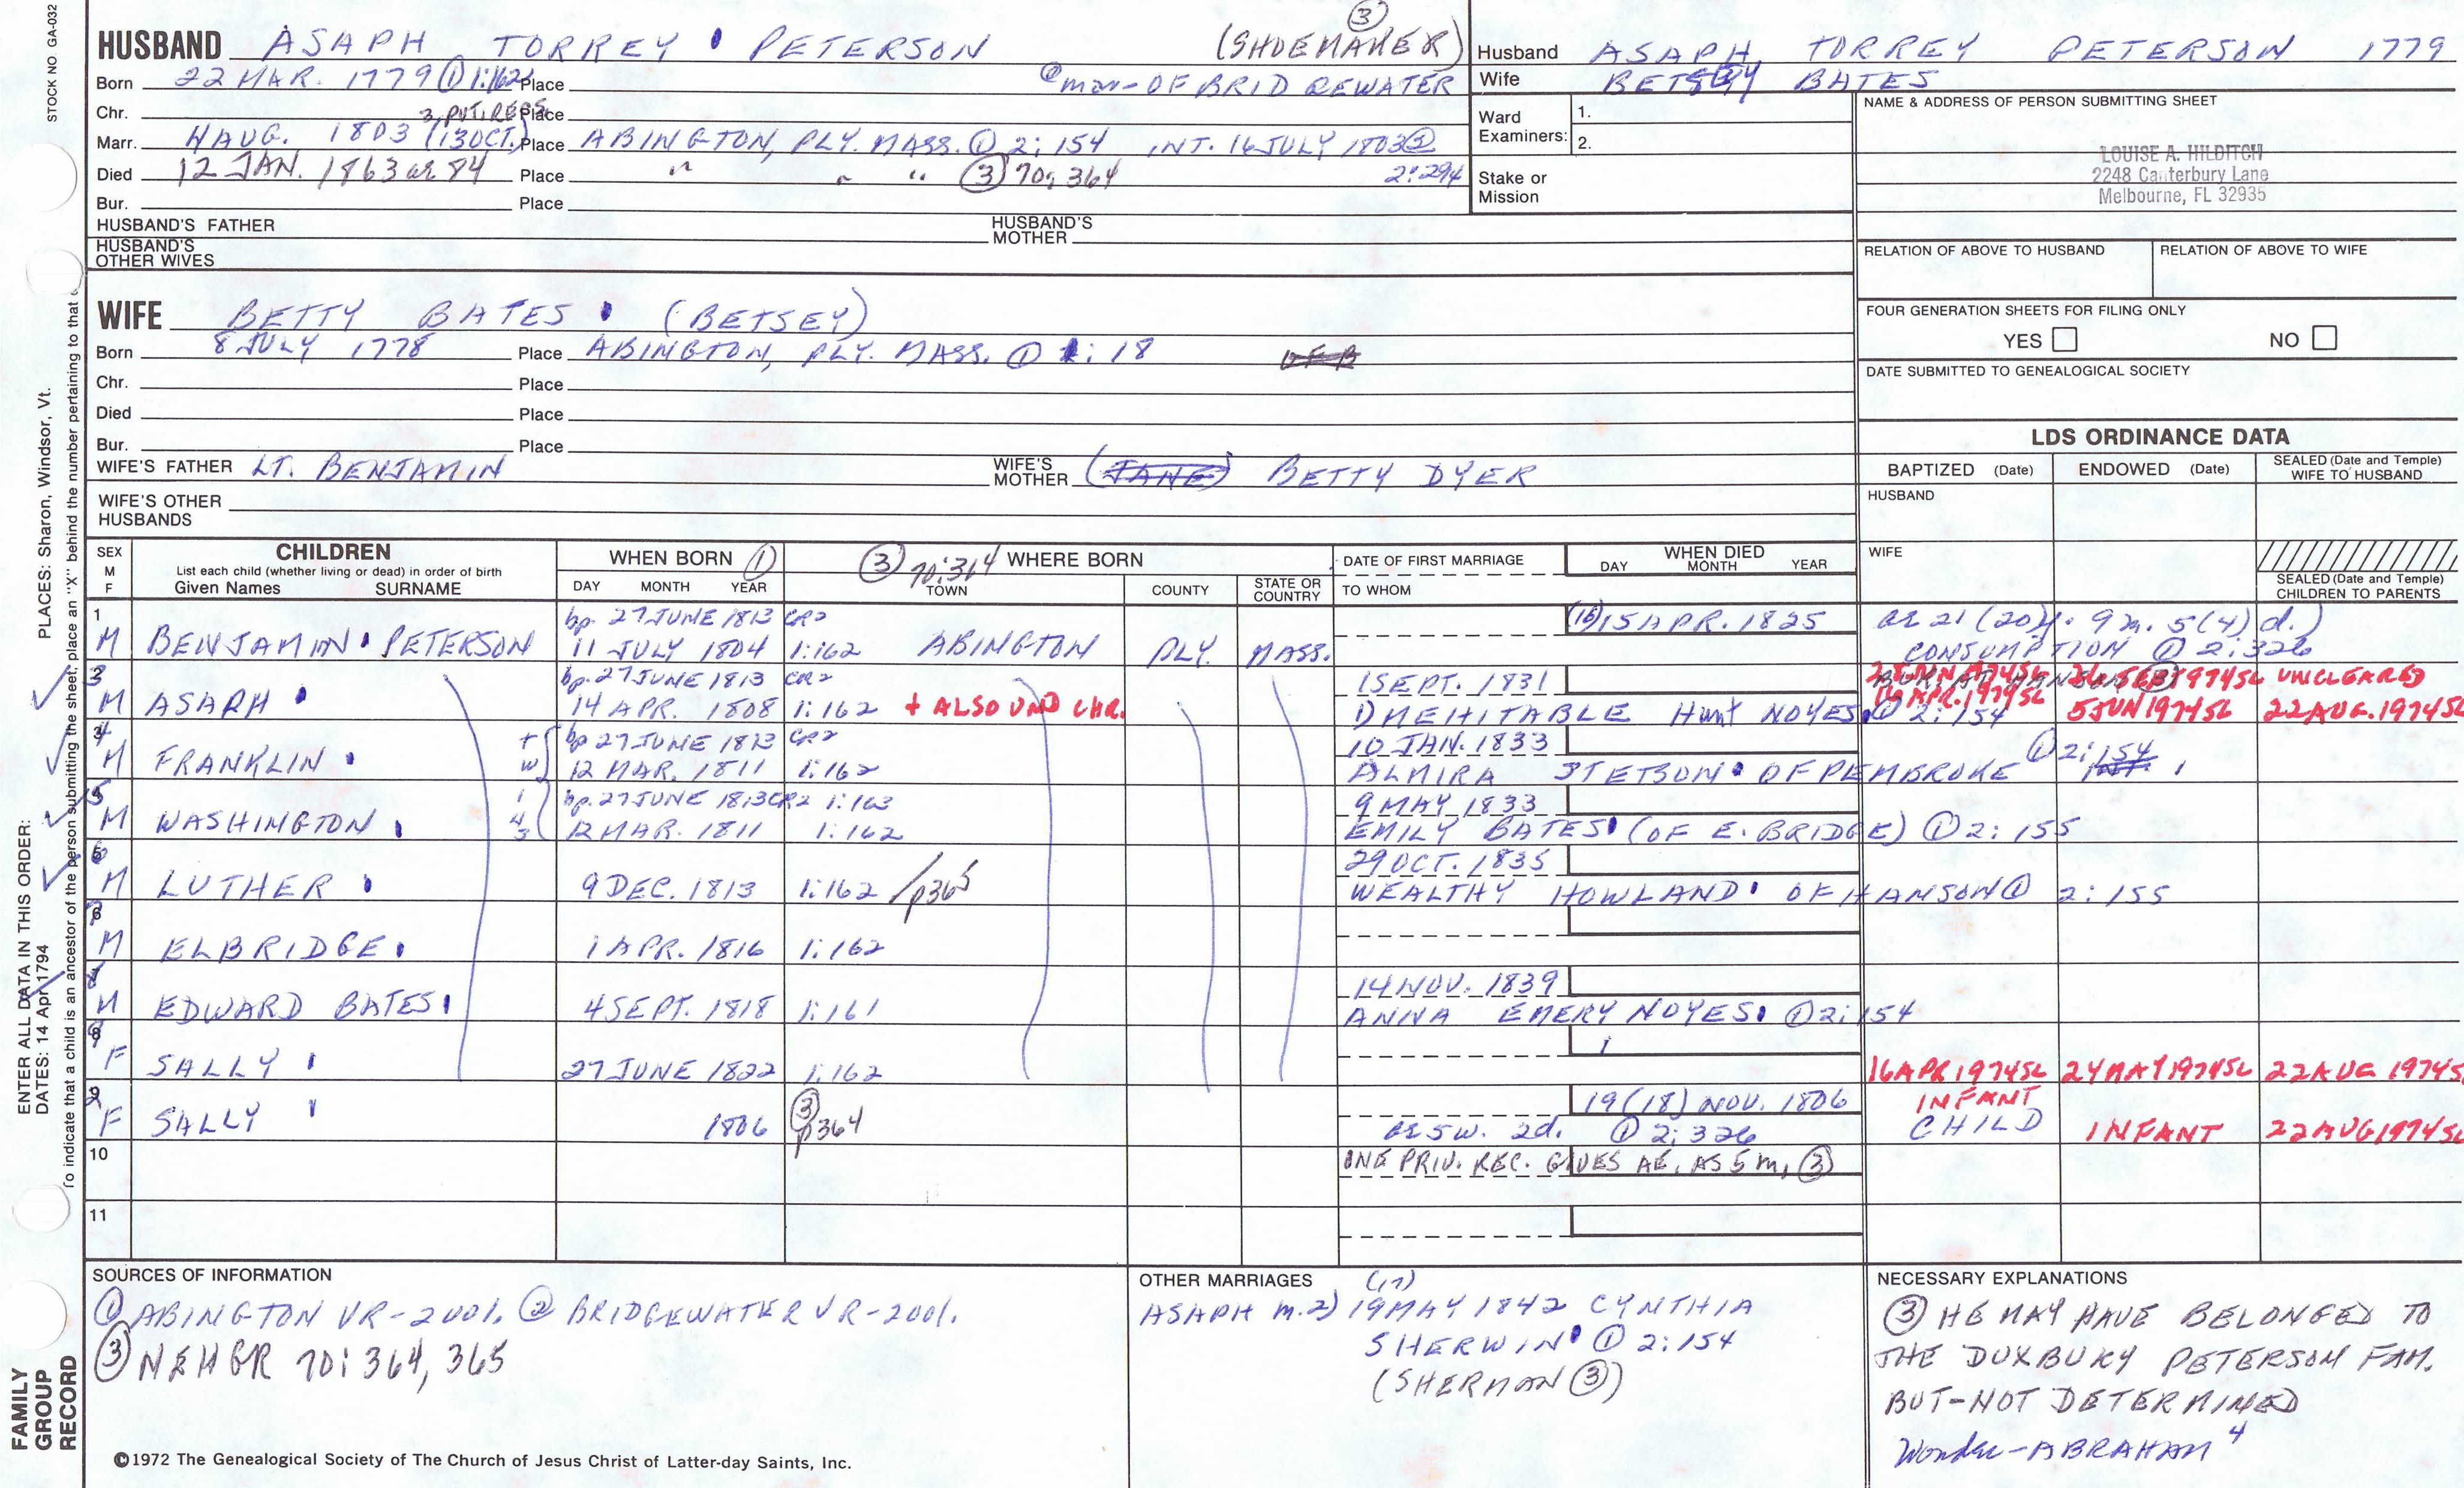 STOCK NO. GA-032
HUSBAND ASAPH TORREY PETERSON (SHOEMAKER) ③
Born 22 MAR. 1779 ① 1:162 Place
② mar- OF BRIDGEWATER
Chr. Place
3 PVT. RECS.
Marr. 4 AUG. 1803 (13 OCT.) Place ABINGTON, PLY. MASS. ① 2:154 INT. 16 JULY 1803 ②
2:294
Died 12 JAN. 1863 ae 84 Place " " " ③ 70: 364
Bur. Place
HUSBAND'S FATHER HUSBAND'S MOTHER
HUSBAND'S OTHER WIVES
Husband ASAPH TORREY PETERSON 1779
Wife BETSEY BATES
Ward Examiners: 1.
2.
Stake or Mission
NAME & ADDRESS OF PERSON SUBMITTING SHEET
LOUISE A. HILDITCH
2248 Canterbury Lane
Melbourne, FL 32935
RELATION OF ABOVE TO HUSBAND RELATION OF ABOVE TO WIFE
FOUR GENERATION SHEETS FOR FILING ONLY
YES NO
DATE SUBMITTED TO GENEALOGICAL SOCIETY
WIFE BETTY BATES (BETSEY)
Born 8 JULY 1778 Place ABINGTON, PLY. MASS. ① 1: 18
Chr. Place
Died Place
Bur. Place
WIFE'S FATHER LT. BENJAMIN WIFE'S MOTHER (JANE) BETTY DYER
WIFE'S OTHER HUSBANDS
LDS ORDINANCE DATA
BAPTIZED (Date) ENDOWED (Date) SEALED (Date and Temple) WIFE TO HUSBAND
HUSBAND
WIFE
SEALED (Date and Temple) CHILDREN TO PARENTS
SEX M F CHILDREN List each child (whether living or dead) in order of birth Given Names SURNAME
WHEN BORN ① DAY MONTH YEAR
③ 70:364 WHERE BORN TOWN COUNTY STATE OR COUNTRY
DATE OF FIRST MARRIAGE TO WHOM
WHEN DIED DAY MONTH YEAR
1 bp. 27 JUNE 1813 CR2 (16) 15 APR. 1825 ae 21 (20) y. 9 m. 5 (4) d.)
M BENJAMIN PETERSON 11 JULY 1804 1:162 ABINGTON PLY. MASS. CONSUMPTION ① 2:326
3 bp. 27 JUNE 1813 CR2 1 SEPT. 1831 UNCLEARED
M ASAPH 14 APR. 1808 1:162 + ALSO UND CHR. 1) MEHITABLE Hunt NOYES ① 2:154 16 APR. 1974 SL 5 JUN 1974 SL 22 AUG. 1974 SL
4 bp 27 JUNE 1813 CR2 10 JAN. 1833
M FRANKLIN 12 MAR. 1811 1:162 ALMIRA STETSON OF PEMBROKE ① 2:154
5 bp. 27 JUNE 1813 CR2 1:163 9 MAY 1833
M WASHINGTON 12 MAR. 1811 1:162 EMILY BATES (OF E. BRIDGE) ① 2:155
6 29 OCT. 1835
M LUTHER 9 DEC. 1813 1:162 / p365 WEALTHY HOWLAND OF HANSON ① 2:155
7
M ELBRIDGE 1 APR. 1816 1:162
8 14 NOV. 1839
M EDWARD BATES 4 SEPT. 1818 1:161 ANNA EMERY NOYES ① 2:154
9
F SALLY 27 JUNE 1822 1:162 16 APR 1974 SL 24 MAY 1974 SL 22 AUG 1974 SL
2 19 (18) NOV. 1806 INFANT
F SALLY 1806 ③ p364 ae 5w. 2d. ① 2:326 CHILD INFANT 22 AUG 1974 SL
10 ONE PRIV. REC. GIVES AE. AS 5 m, ③
11
SOURCES OF INFORMATION
① ABINGTON VR-2 Vol. ② BRIDGEWATER VR-2 Vol.
③ NEHGR 70: 364, 365
OTHER MARRIAGES
(17)
ASAPH m. 2) 19 MAY 1842 CYNTHIA
SHERWIN ① 2:154
(SHERMAN ③)
NECESSARY EXPLANATIONS
③ HE MAY HAVE BELONGED TO
THE DUXBURY PETERSON FAM.
BUT-NOT DETERMINED
Wonder-ABRAHAM 4
©1972 The Genealogical Society of The Church of Jesus Christ of Latter-day Saints, Inc.
FAMILY GROUP RECORD
ENTER ALL DATA IN THIS ORDER:
DATES: 14 Apr 1794
PLACES: Sharon, Windsor, Vt.
To indicate that a child is an ancestor of the person submitting the sheet, place an "X" behind the number pertaining to that